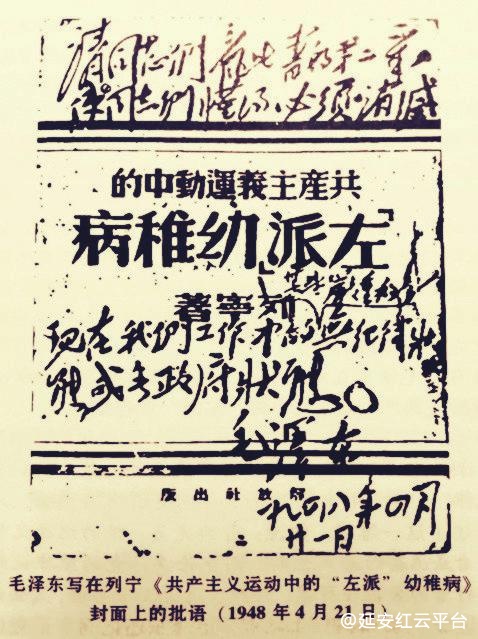 請同志們看此書的第二章,
使同志們懂得,必须消滅
共產主義運動中的
「左派」幼稚病
列寧著
某些嚴重的
现在我們工作中的无纪律狀
態或无政府狀態。
毛澤东
解放社出版
一九四八年四月
廿一日
毛泽东写在列宁《共产主义运动中的“左派”幼稚病》
封面上的批语(1948年4月21日)
@延安红云平台